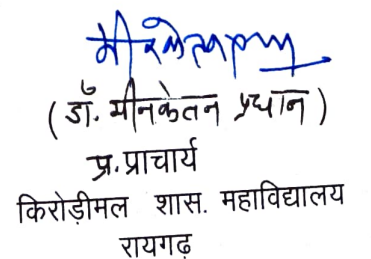 (डॉ. मीनकेतन प्रधान)
प्र. प्राचार्य
किरोड़ीमल शास. महाविद्यालय
रायगढ़